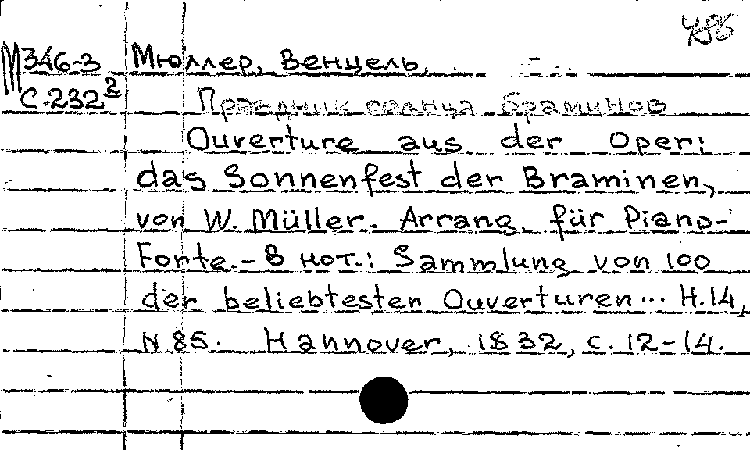 М346-3 Мюллер, Венцель.
С.232² Праздник солнца браминов
Ouverture aus der Oper:
das Sonnenfest der Braminen,
von W. Müller. Arrang. für Piano-
Forte.- В нот.: Sammlung von 100
der beliebtesten Ouverturen... H.14,
N 85. Hannover, 1832, с. 12-14.